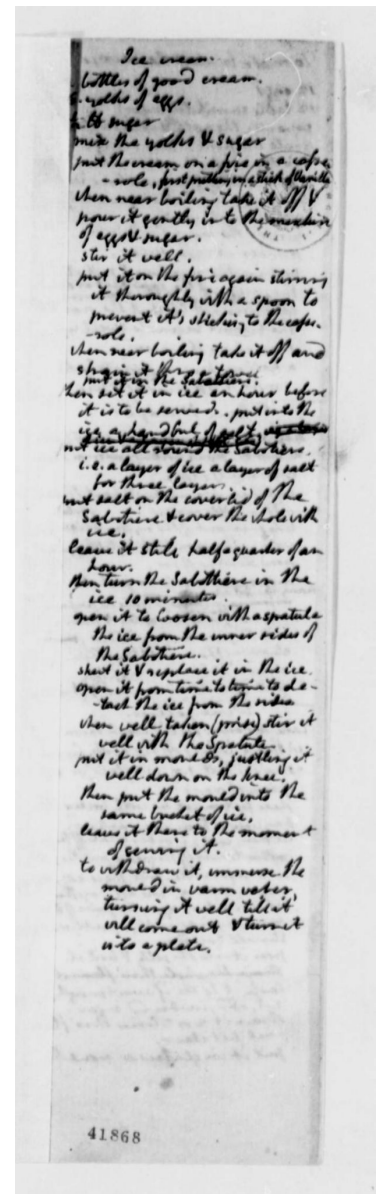 Ice cream.
bottles of good cream.
yolks of eggs.
lb sugar
mix the yolks & sugar
put the cream on a fire in a casse-
-role, first putting in a stick of Vanilla.
when near boiling take it off &
pour it gently into the mixture
of eggs & sugar.
stir it well.
put it on the fire again stirring
it thoroughly with a spoon to
prevent it's sticking to the casse-
-role.
when near boiling take it off and
strain it thro' a towel.
put it in the Sabottiere.
then set it in ice an hour before
it is to be served. put into the
ice a handful of salt.
put ice all around the Sabottiere.
i.e. a layer of ice a layer of salt
for three layers.
put salt on the coverlid of the
Sabotiere & cover the whole with
ice.
leave it still half a quarter of an
hour.
then turn the Sabottiere in the
ice 10 minutes.
open it to loosen with a spatula
the ice from the inner sides of
the Sabotiere.
shut it & replace it in the ice.
open it from time to time to de-
-tach the ice from the sides
when well taken (prise) stir it
well with the Spatula.
put it in moulds, justling it
well down on the knee.
then put the mould into the
same bucket of ice.
leave it there to the moment
of serving it.
to withdraw it, immerse the
mould in warm water,
turning it well till it
will come out & turn it
into a plate.
41868